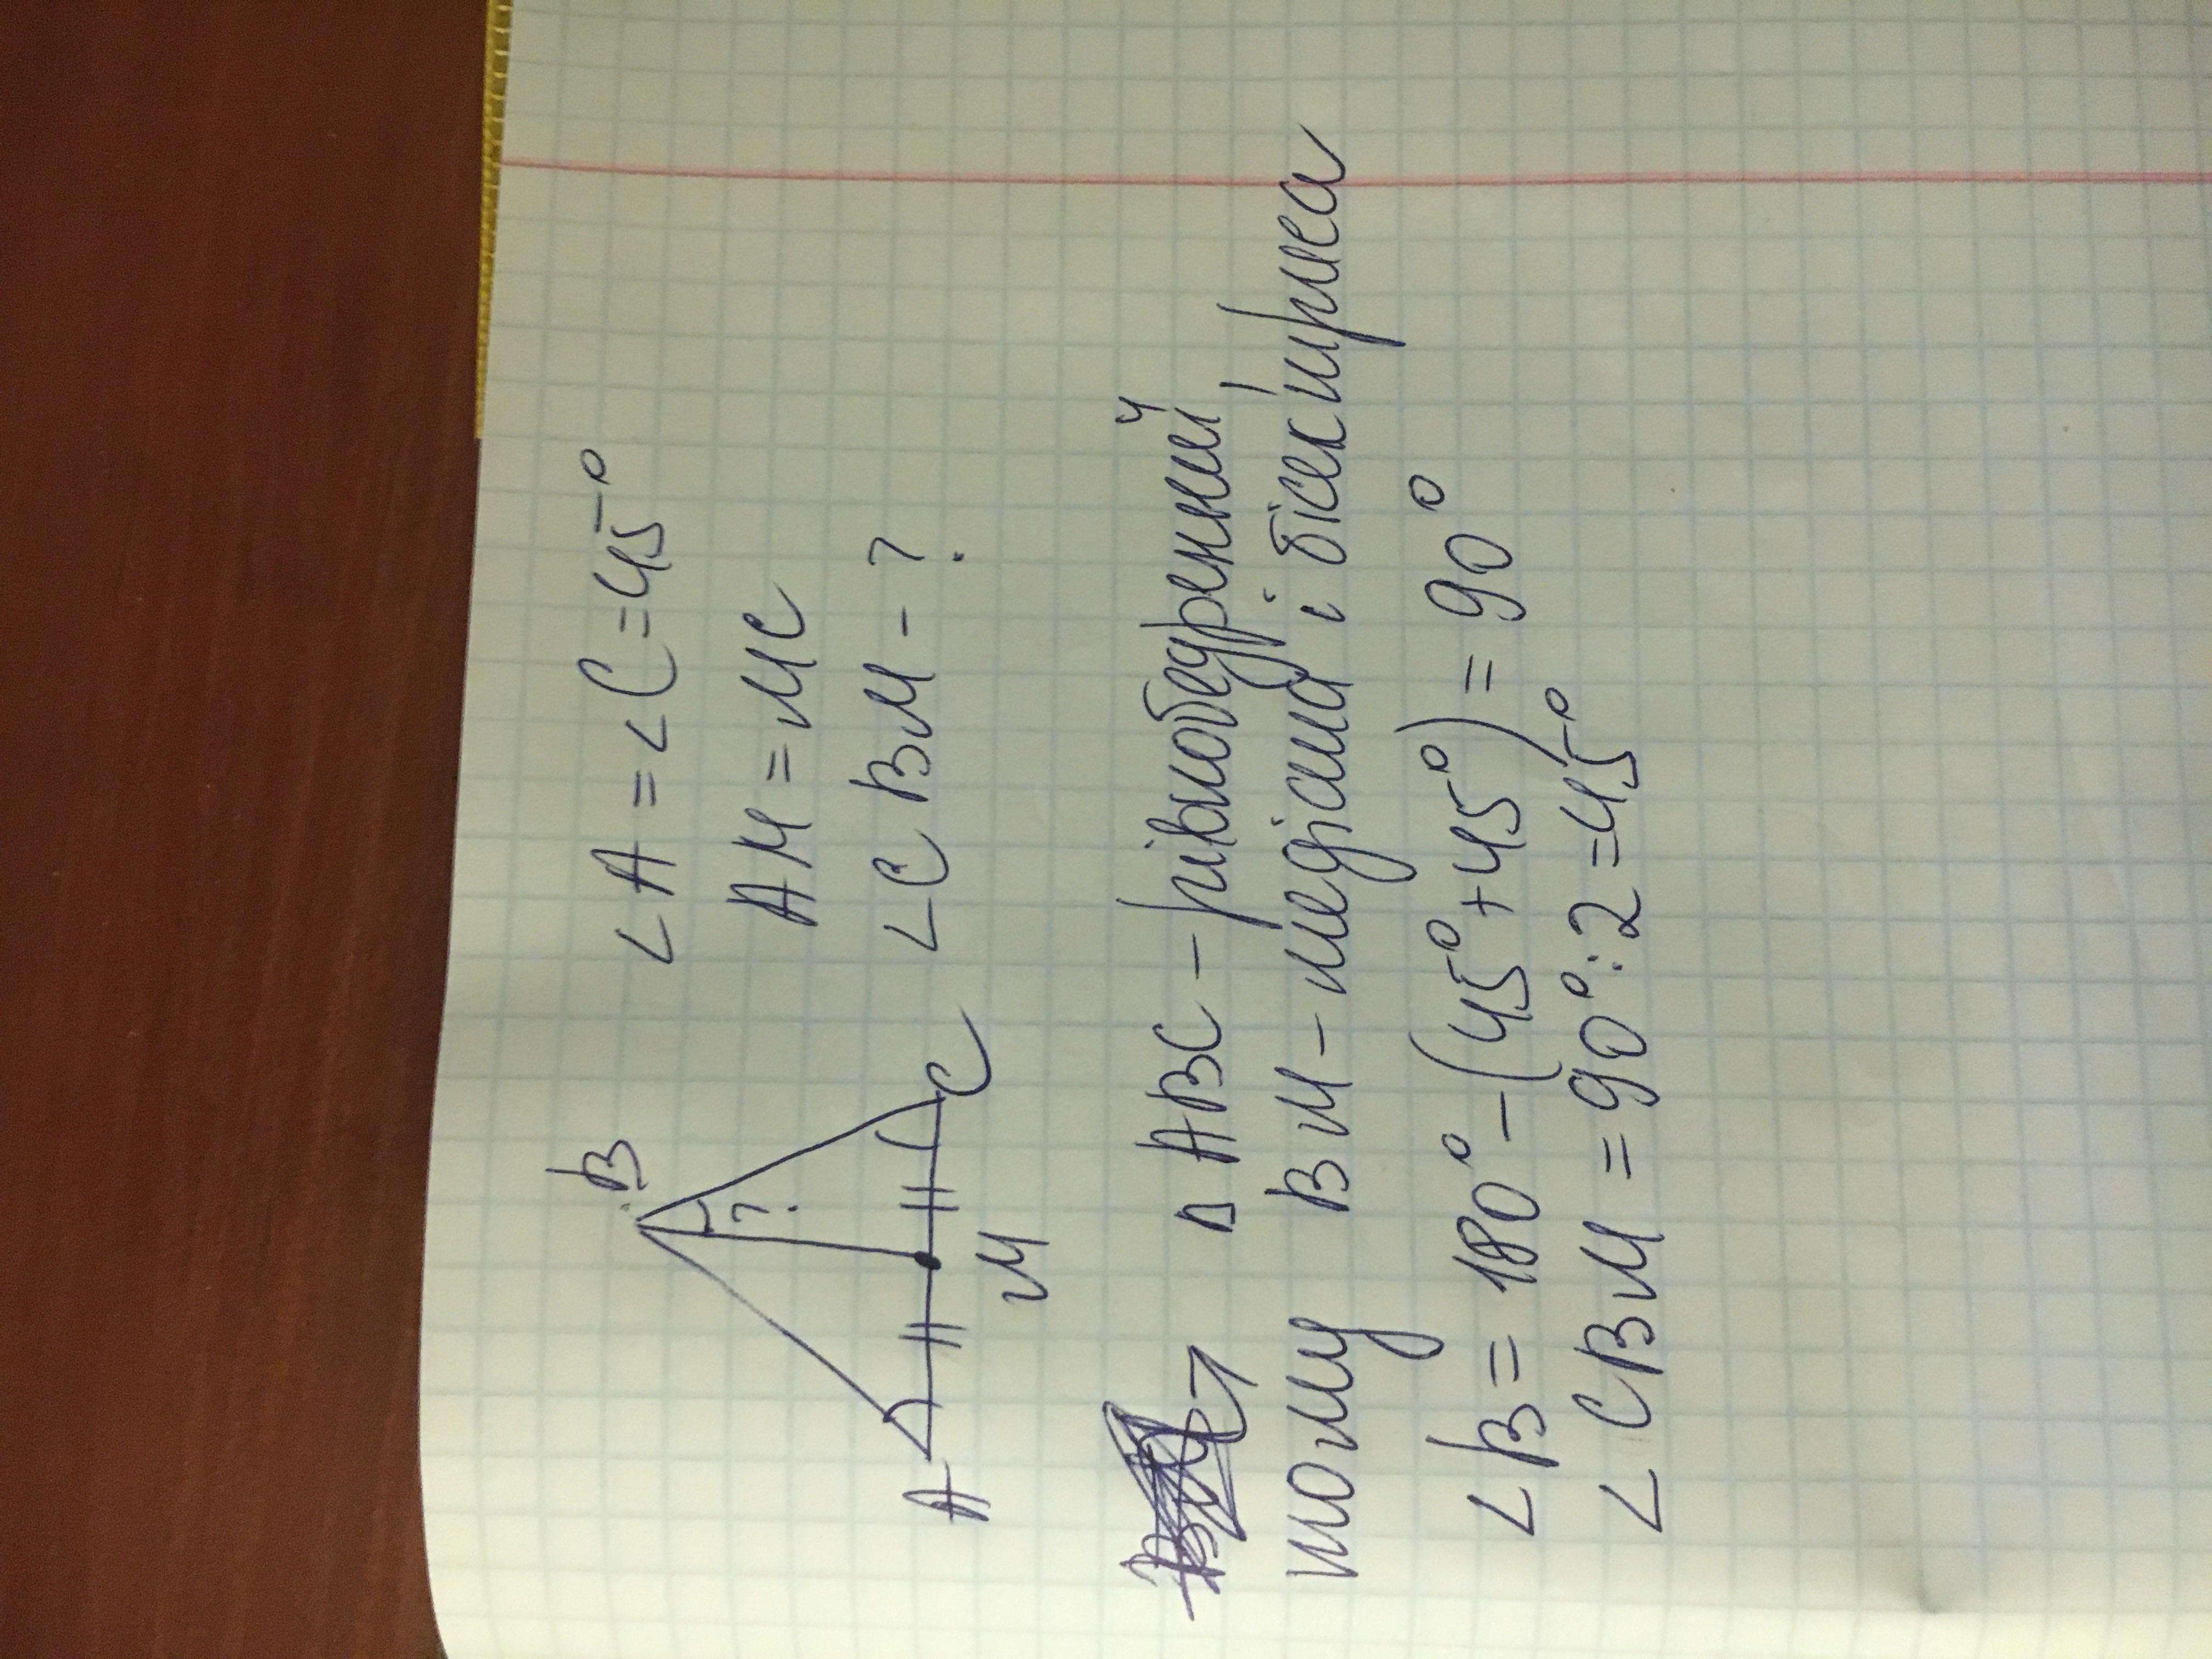 B
∠A = ∠C = 45°
AM = MC
?
∠CBM - ?
A
M
C
△ABC - рівнобедрений,
тому BM - медіана і бісектриса
∠B = 180° - (45° + 45°) = 90°
∠CBM = 90° : 2 = 45°